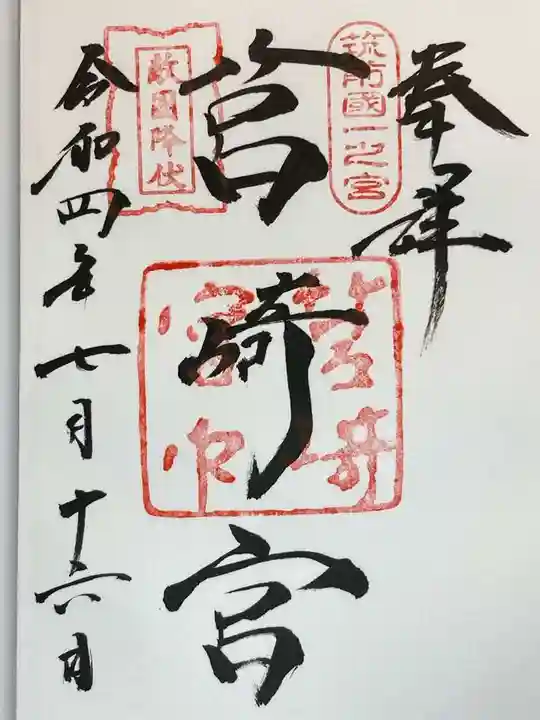 奉拝
筑前國一之宮
筥崎宮
敵國降伏
令和四年七月十六日